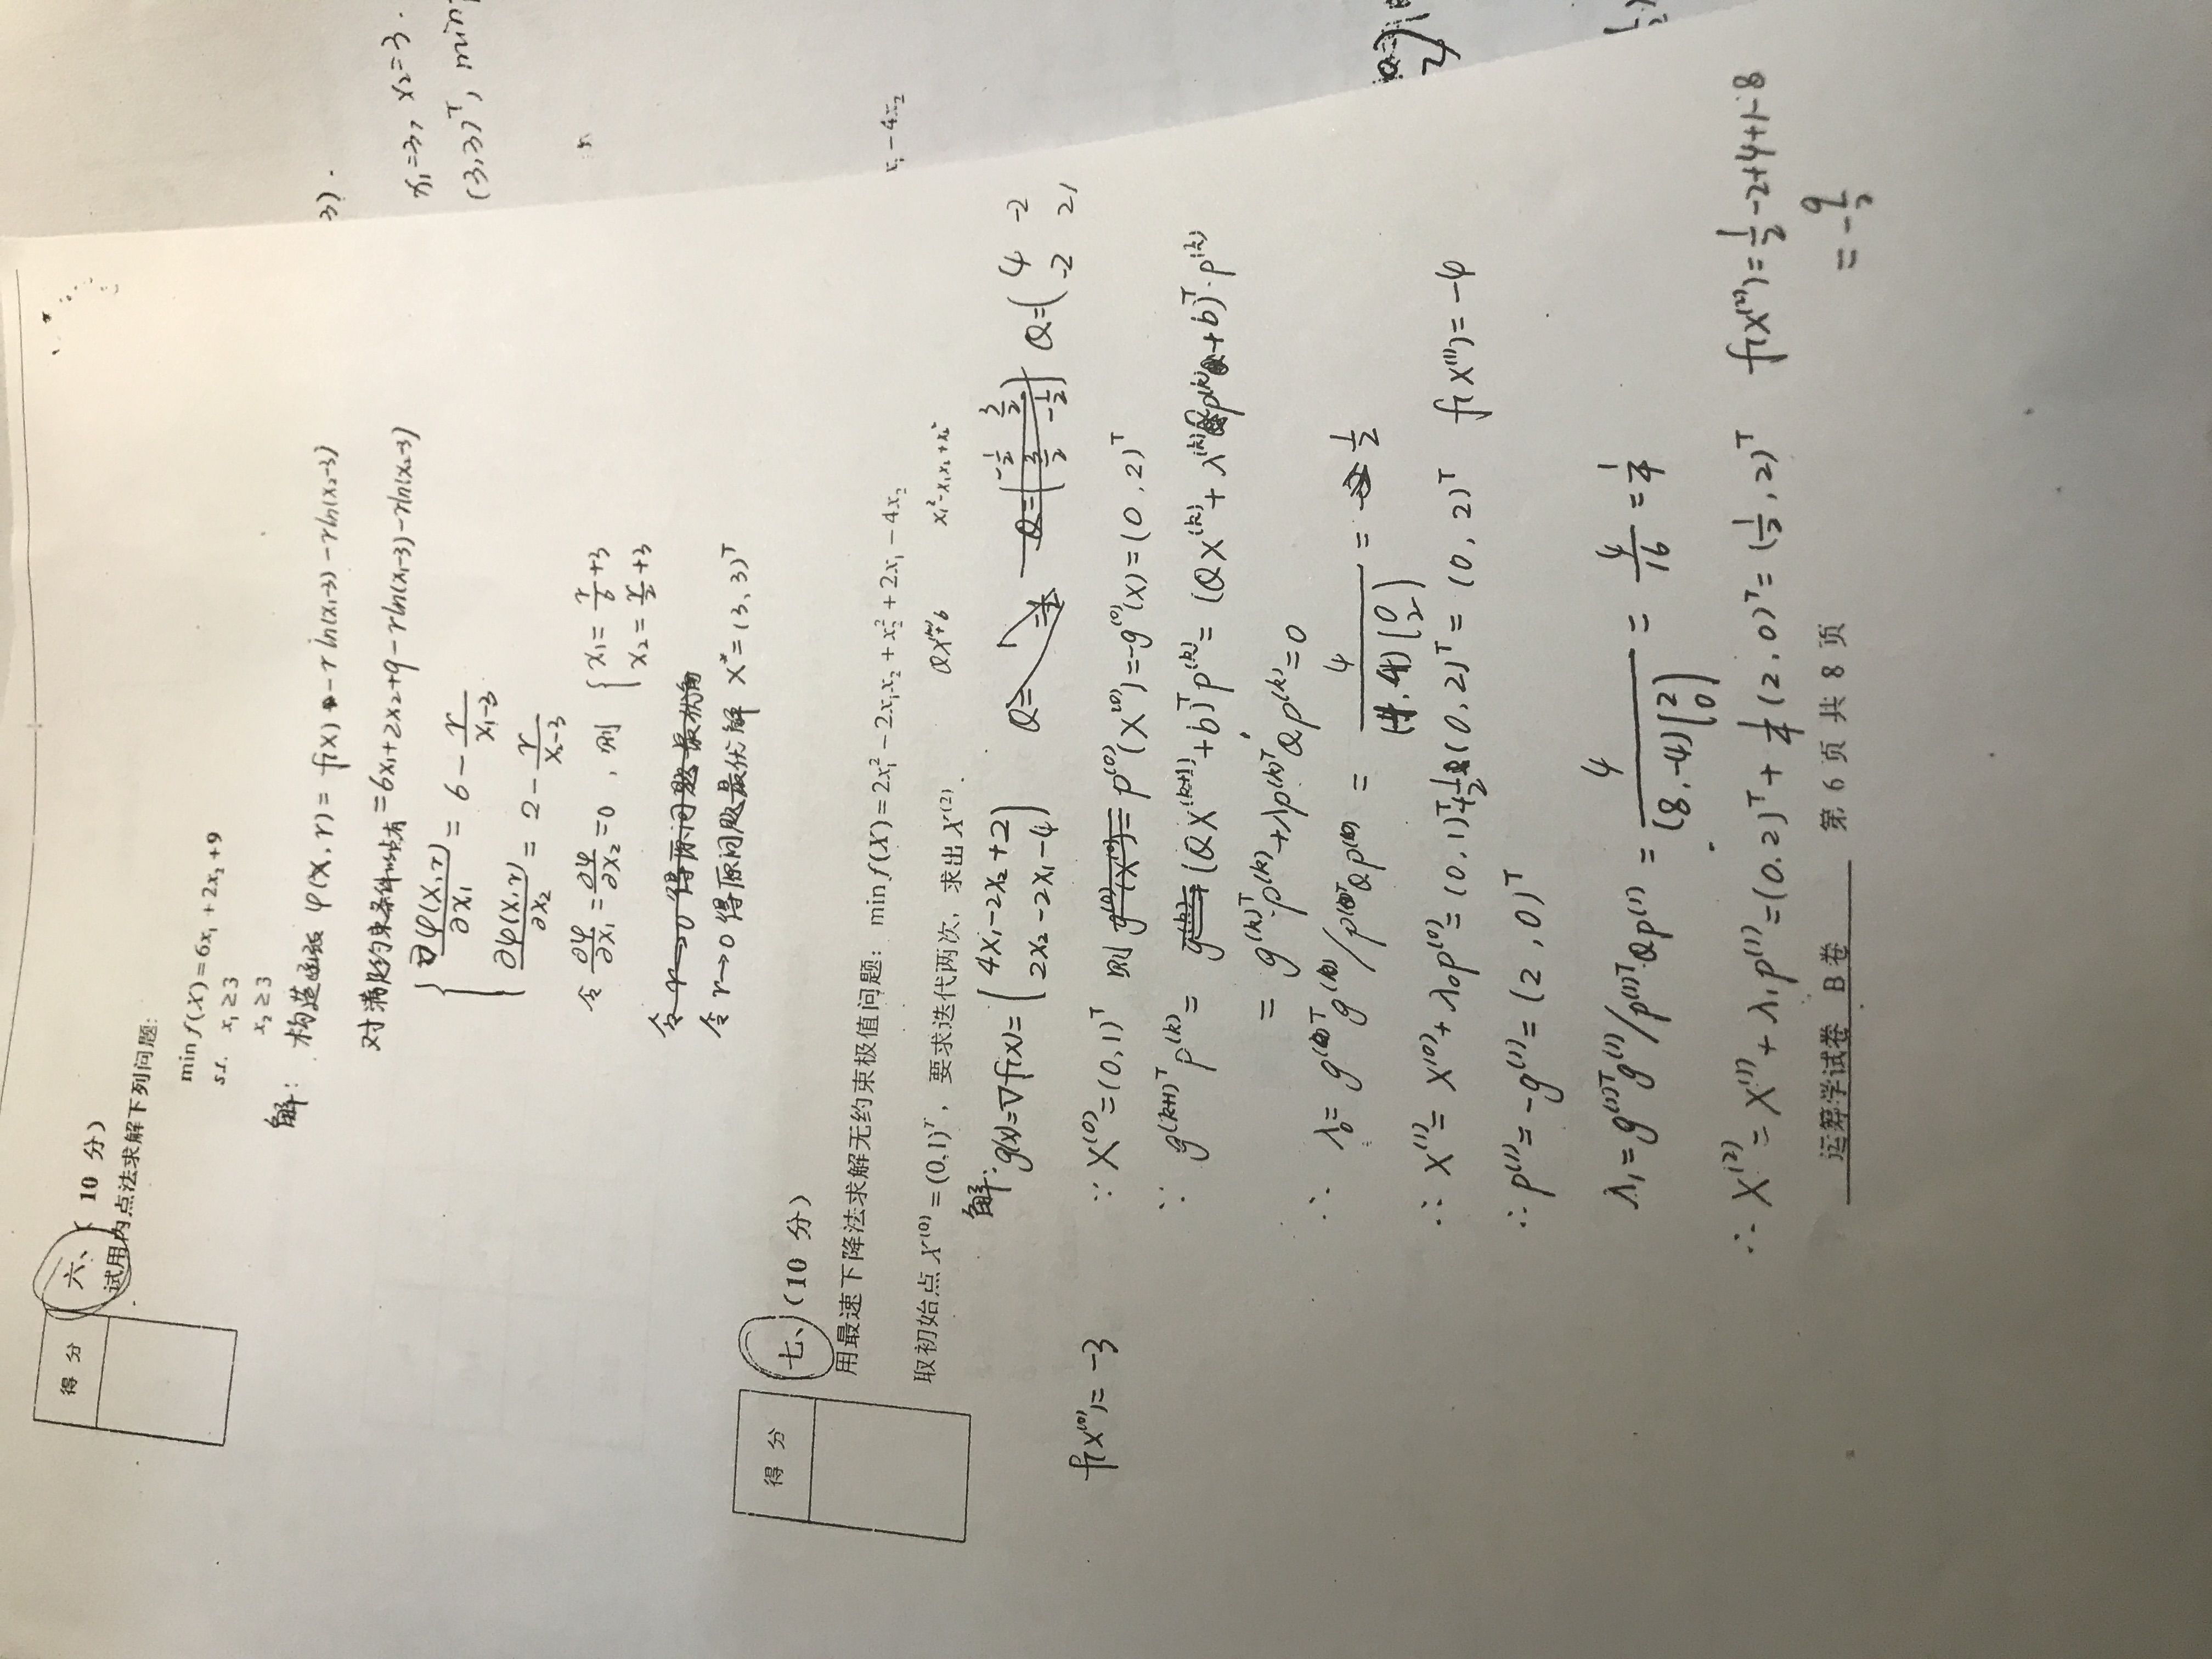 得 分
六、( 10 分)
试用内点法求解下列问题:
min f(X)=6x₁+2x₂+9
s.t. x₁≥3
x₂≥3
解: 构造函数 φ(X,r)= f(x) -r ln(x₁-3)-r ln(x₂-3)
对满足约束条件的点有 =6x₁+2x₂+9-rln(x₁-3)-rln(x₂-3)
∂φ(X,r)/∂x₁ = 6 - r/(x₁-3)
∂φ(X,r)/∂x₂ = 2 - r/(x₂-3)
令 ∂φ/∂x₁ = ∂φ/∂x₂ =0 , 则 { x₁= r/6 +3
x₂= r/2 +3
令 r→0 得原问题最优解
令 r→0 得原问题最优解 X*=(3,3)ᵀ
3).
x₁=3, x₂=3.
(3,3)ᵀ, min
得 分
七、(10 分)
用最速下降法求解无约束极值问题: min f(X)=2x₁²-2x₁x₂+x₂²+2x₁-4x₂
x₁-4x₂
取初始点 X⁽⁰⁾=(0,1)ᵀ, 要求迭代两次, 求出 X⁽²⁾.
x₁²-x₁x₂+x₂²
解: g(x)=∇f(x)= (4x₁-2x₂+2
2x₂-2x₁-4)
Q= Q=(-1/2 3/2
3/2 -1/2) Q=(4 -2
-2 2)
f(x⁽⁰⁾)=-3
∵ X⁽⁰⁾=(0,1)ᵀ 则 g⁽⁰⁾(X⁽⁰⁾)= p⁽⁰⁾(X⁽⁰⁾)=-g⁽⁰⁾(x)=(0,2)ᵀ
∵ g⁽ᵏ⁺¹⁾ᵀp⁽ᵏ⁾= (QX⁽ᵏ⁺¹⁾+b)ᵀp⁽ᵏ⁾= (QX⁽ᵏ⁾+λ⁽ᵏ⁾Qp⁽ᵏ⁾+b)ᵀ·p⁽ᵏ⁾
= g⁽ᵏ⁾ᵀ·p⁽ᵏ⁾+λp⁽ᵏ⁾ᵀQp⁽ᵏ⁾=0
∴ λ₀= g⁽⁰⁾ᵀg⁽⁰⁾/p⁽⁰⁾ᵀQp⁽⁰⁾ = 4/((-4,4)(0 2)) = 1/2
∴ X⁽¹⁾= X⁽⁰⁾+λ₀p⁽⁰⁾=(0,1)ᵀ+1/2(0,2)ᵀ= (0,2)ᵀ f(X⁽¹⁾)=-4
∴ p⁽¹⁾=-g⁽¹⁾=(2,0)ᵀ
λ₁= g⁽¹⁾ᵀg⁽¹⁾/p⁽¹⁾ᵀ·Qp⁽¹⁾ = 4/((8,-4)(2 0)) = 4/16 = 1/4
∴ X⁽²⁾= X⁽¹⁾+λ₁p⁽¹⁾=(0,2)ᵀ+1/4(2,0)ᵀ=(1/2,2)ᵀ f(X⁽²⁾)=1/2-2+4+1-8
= -9/2
运筹学试卷 B卷 第 6 页 共 8 页